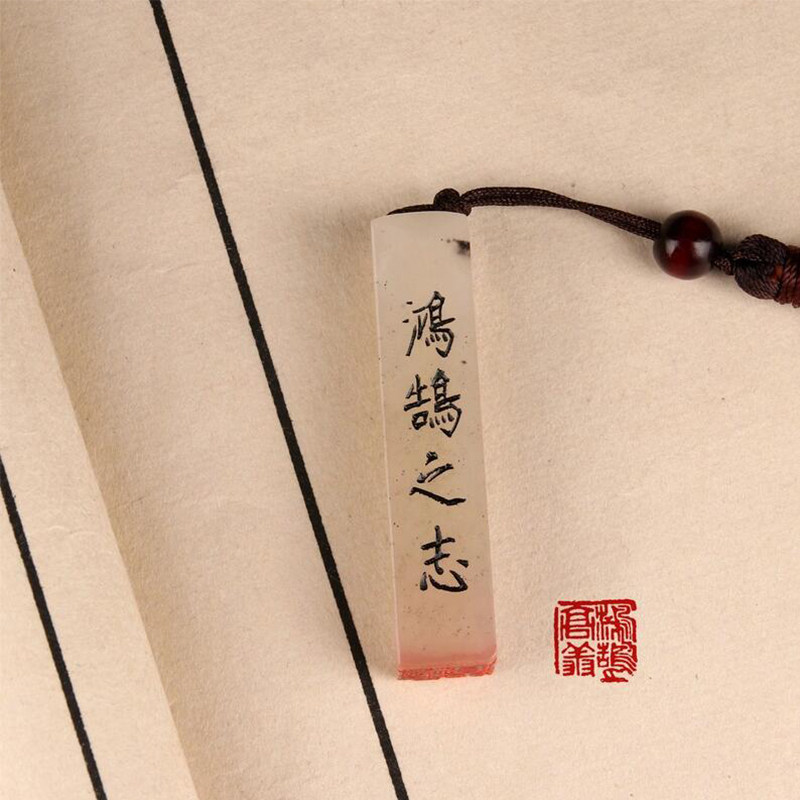 鴻鵠之志